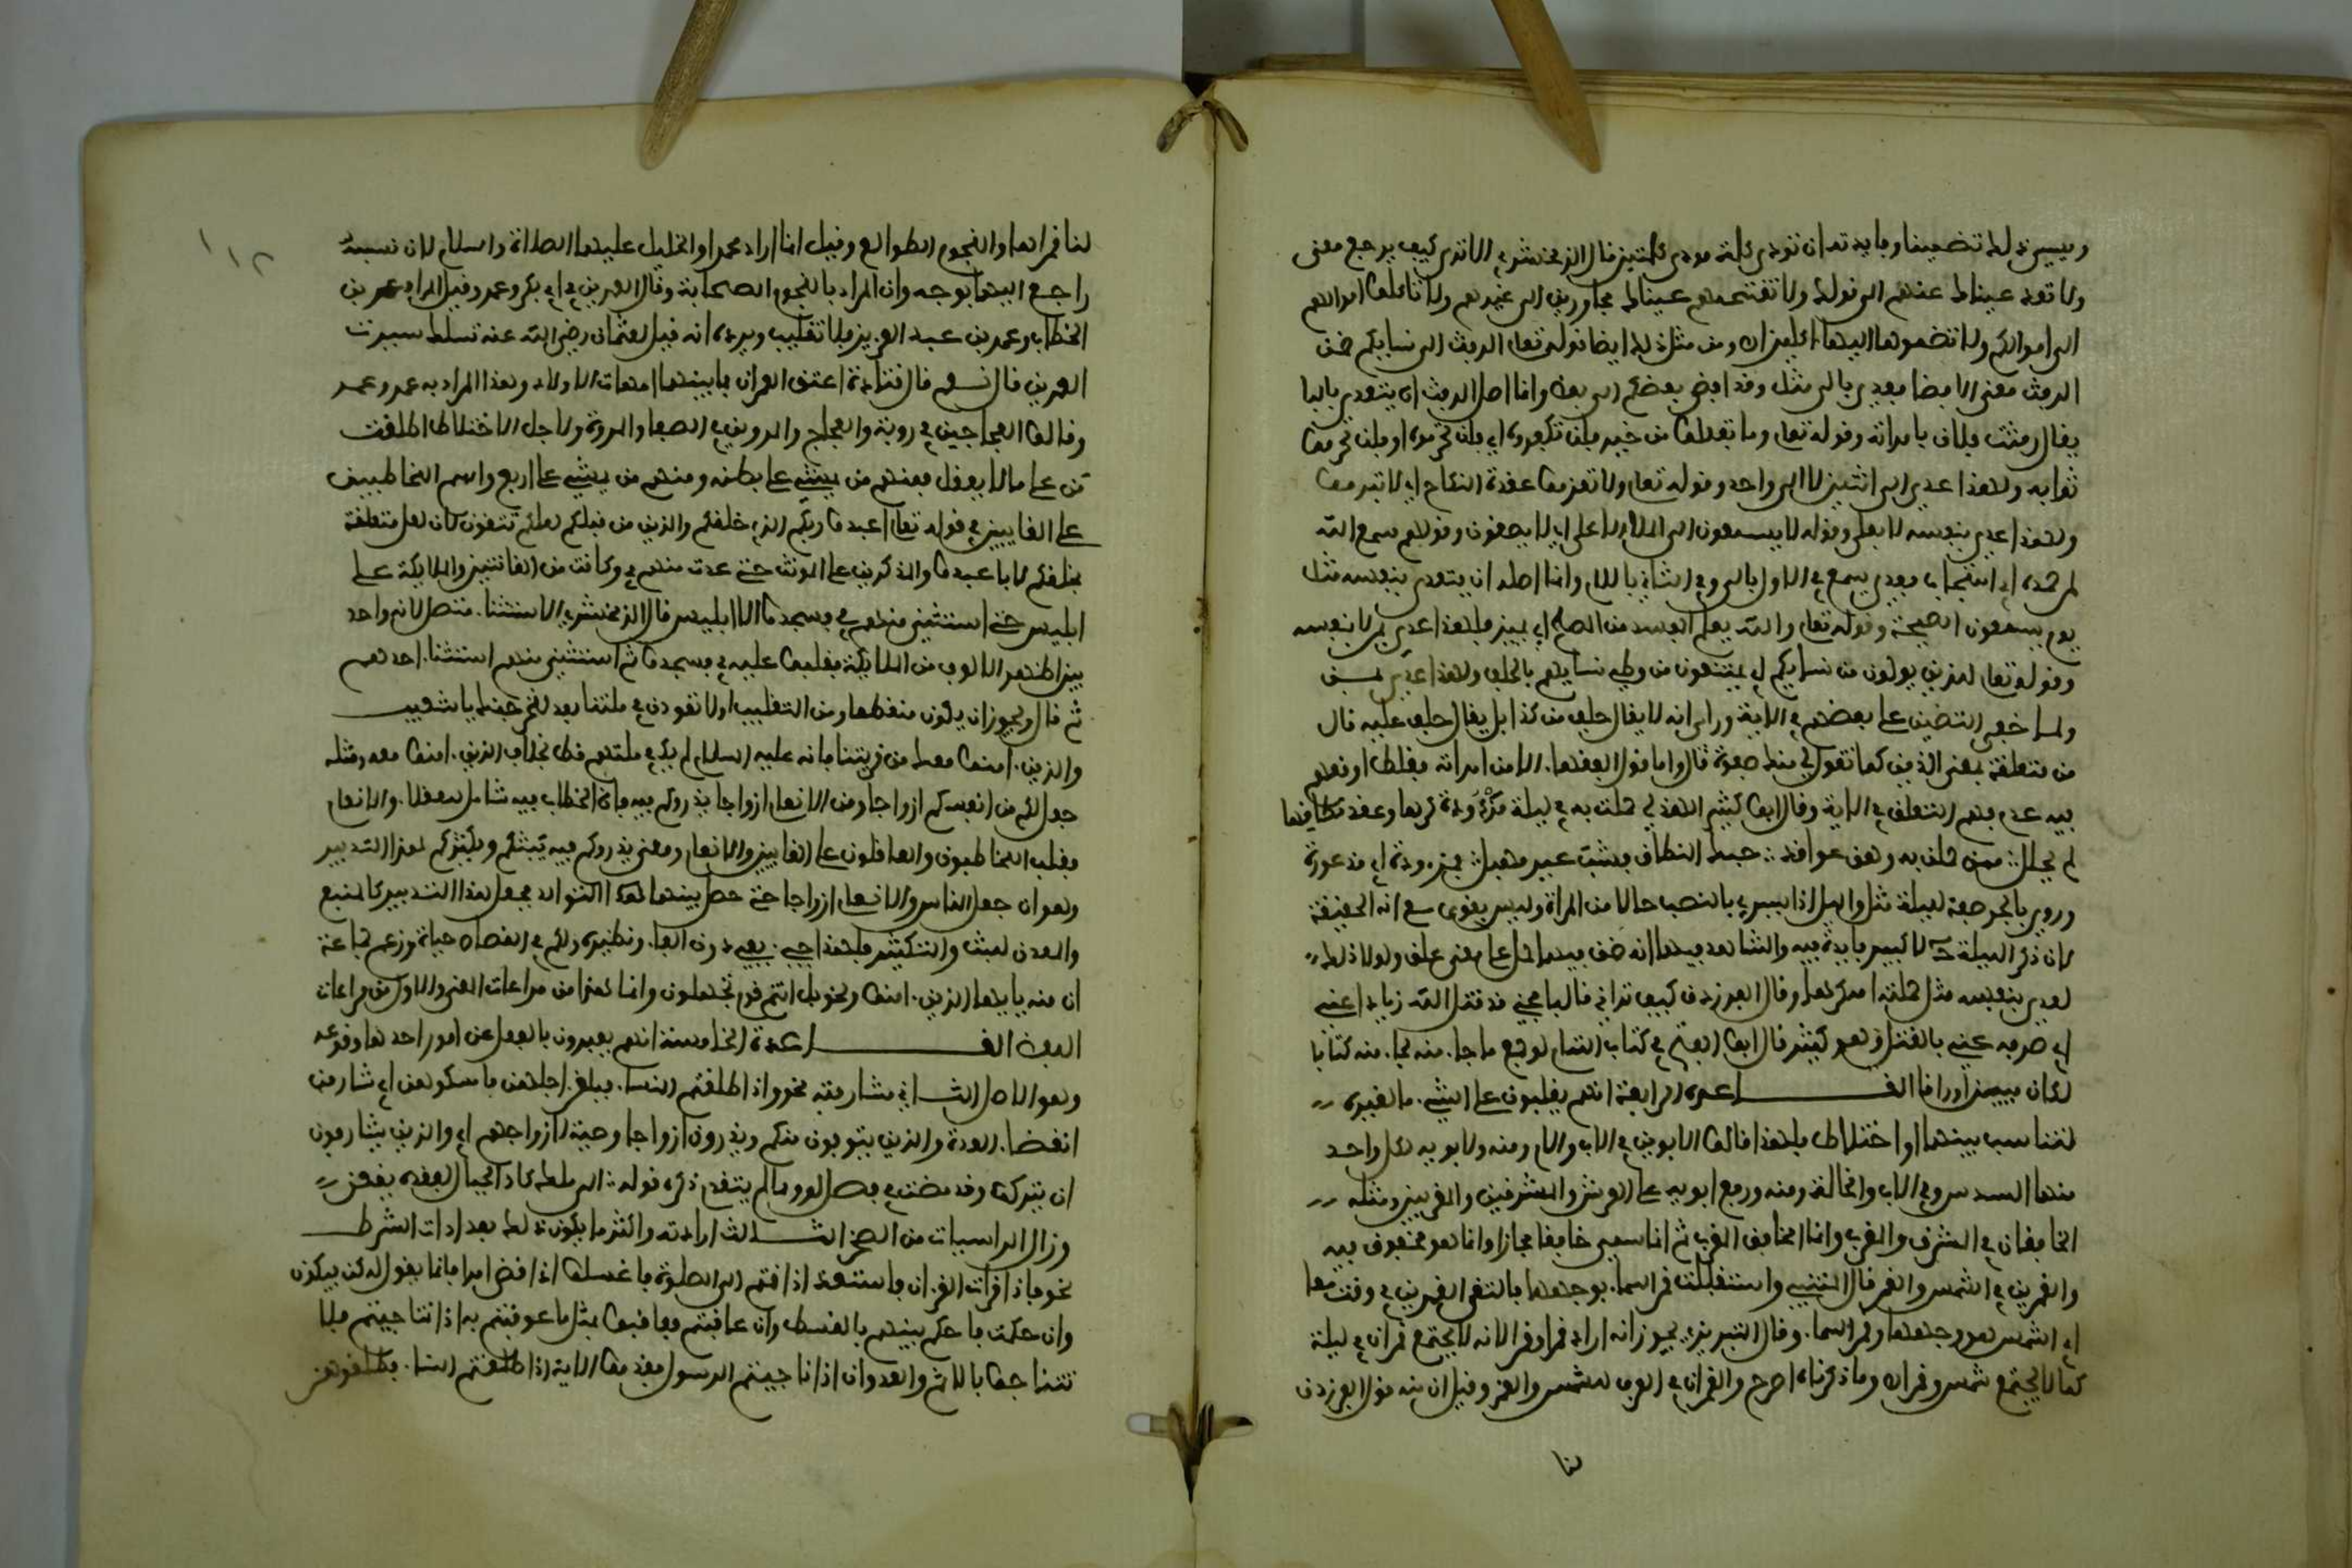 ويسمى ذلك تضمينا وفايدته ان تودي كلمة مودى كلمتين قال الزمخشري الا ترى كيف يرجع معنى
ولا تعد عيناك عنهم الى قولك ولا تقتحمهم عيناك مجاوزين الى غيرهم ولا تاكلوا اموالهم
الى اموالكم ولا تضموها اليها اكلين اه ومن مثل ذلك ايضا قوله تعلى الرفث الى نسايكم ضمن
الرفث معنى الافضا فعدي بالى مثل وقد افضى بعضكم الى بعض وانما اصل الرفث ان يتعدى بالبا
يقال رفث فلان بامراته وقوله تعلى وما تفعلوا من خير فلن تكفروه اي فلن تحرموه او فلن تحرموا
ثوابه ولهذا عدي الى اثنين لا الى واحد وقوله تعلى ولا تعزموا عقدة النكاح اي لا تبرموا
ولهذا عدي بنفسه لا بعلى وقوله لا يسمعون الى الملا الاعلى اي لا يصغون وقولهم سمع الله
لمن حمده اي استجاب فعدي يسمع في الاول بالى وفي الثاني باللام وانما اصله ان يتعدى بنفسه مثل
يوم يسمعون الصيحة وقوله تعلى والله يعلم المفسد من المصلح اي يميز فلهذا عدي بمن لا بنفسه
وقوله تعلى للذين يولون من نسايهم اي يمتنعون من وطء نسايهم بالحلف ولهذا عدي بمن
ولما خفي التضمين على بعضهم في الاية وراى انه لا يقال حلف من كذا بل يقال حلف عليه قال
من متعلقة بمعنى للذين كما تقول لي منك مبرة قال واما قول الفقها الا من امراته فغلط اوقعهم
فيه عدم فهم المتعلق في الاية وقال ابو كبير الهذلي حملت به في ليلة مزءودة كرها وعقد نطاقها
لم يحلل ممن حملن به وهن عواقد حبك النطاق فشب غير مهبل مزءودة اي مذعورة
وروي بالجر صفة لليلة مثل والليل اذا يسري بالنصب حالا من المراة وليس بقوي مع انه الحقيقة
لان ذكر الليلة ح لا كبير فايدة فيه والشاهد فيهما انه ضمن فيهما حمل على معنى علق ولولا ذلك
لعدي بنفسه مثل حملته امه كرها وقال الفرزدق كيف تراني قالبا مجني قد قتل الله زيادا عني
اي صرفه عني بالقتل وهو كثير قال ابو الفتح في كتاب التمام لو جمع ما جاء منه لجاء منه كتابا
لكان ميين اوراقا القاعدة الرابعة انهم يغلبون على الشيء ما لغيره
لتناسب بينهما او اختلاط فلهذا قالوا الابوين في الاب والام ومنه ولابويه لكل واحد
منهما السدس وفي الاب والخالة ومنه ورفع ابويه على العرش والمشرقين والمغربين ومثله
الخافقان في المشرق والمغرب وانما الخافق المغرب ثم انما سمي خافقا مجازا وانما هو مخفوق فيه
والقمرين في الشمس والقمر قال المتنبي واستقبلت قمر السماء بوجهها فارتني القمرين في وقت معا
اي الشمس هو وجهها وقمر السماء وقال التبريزي يجوز انه اراد قمرا وقمرا لانه لا يجتمع قمران في ليلة
كما لا يجتمع شمس وقمر اه وما ذكرناه امدح والقمران في العرف للشمس والقمر وقيل ان منه قول الفرزدق
لنا
١١٢
لنا قمراها والنجوم الطوالع وقيل انما اراد محمدا والخليل عليهما الصلاة والسلام لان نسبه
راجع اليهما بوجه وان المراد بالنجوم الصحابة وقالوا العمرين في ابي بكر وعمر وقيل المراد عمر بن
الخطاب وعمر بن عبد العزيز فلا تغليب ويرده انه قيل لعثمان رضي الله عنه نسلك سيرة
العمرين قال نعم قال قتادة اعتق العمران فما بينهما امهات الاولاد وهذا المراد به عمر وعمر
وقالوا العجاجين في روبة والعجاج والمروتين في الصفا والمروة ولاجل الاختلاط اطلقت
من على ما لا يعقل فمنهم من يمشي على بطنه ومنهم من يمشي على اربع واسم المخاطبين
على الغايبين في قوله تعلى اعبدوا ربكم الذي خلقكم والذين من قبلكم لعلكم تتقون لان لعل متعلقة
بخلقكم لا باعبدوا والمذكرين على المونث حتى عدت منهم في وكانت من القانتين والملايكة على
ابليس حتى استثني منهم في فسجدوا الا ابليس قال الزمخشري الاستثناء متصل لانه واحد
بين اظهر الالوف من الملايكة فغلبوا عليه في فسجدوا ثم استثني منهم استثناء احدهم
ثم قال ويجوز ان يكون منقطعا ومن التغليب او لتعودن في ملتنا بعد لنخرجنك يا شعيب
والذين امنوا معك من قريتنا فانه عليه السلام لم يكن في ملتهم قط بخلاف الذين امنوا معه ومثله
جعل لكم من انفسكم ازواجا ومن الانعام ازواجا يذروكم فيه فان الخطاب فيه شامل للعقلاء والانعام
فغلب المخاطبون والعاقلون على الغايبين والانعام ومعنى يذروكم فيه يبثكم ويكثركم في هذا التدبير
وهو ان جعل للناس والانعام ازواجا حتى حصل بينهما التوالد فجعل هذا التدبير كالمنبع
والمعدن للبث والتكثير فلهذا جيء بفي دون الباء ونظيره ولكم في القصاص حياة وزعم جماعة
ان منه يا يها الذين امنوا ونحو بل انتم قوم تجهلون وانما هذا من مراعات المعنى والاول من مراعات
اللفظ القاعدة الخامسة انهم يعبرون بالفعل عن امور احدها وقوعه
وهو الاصل الثاني مشارفته نحو واذا طلقتم النساء فبلغن اجلهن فامسكوهن اي شارفن
انقضاء العدة والذين يتوفون منكم ويذرون ازواجا وصية لازواجهم اي والذين يشارفون
ان يتركوا وقد مضت في فصل لو ومما لم يتقدم ذكره قوله الى ملك كاد الجبال لفقده يقعن
وزال الراسيات من الصخر الثالث ارادته واكثر ما يكون ذلك بعد ادات الشرط
نحو فاذا قرات القرءان فاستعذ اذا قمتم الى الصلوة فاغسلوا اذا قضى امرا فانما يقول له كن فيكون
وان حكمت فاحكم بينهم بالقسط وان عاقبتم فعاقبوا بمثل ما عوقبتم به اذا تناجيتم فلا
تتناجوا بالاثم والعدوان اذا ناجيتم الرسول فقدموا الاية اذا طلقتم النساء فطلقوهن